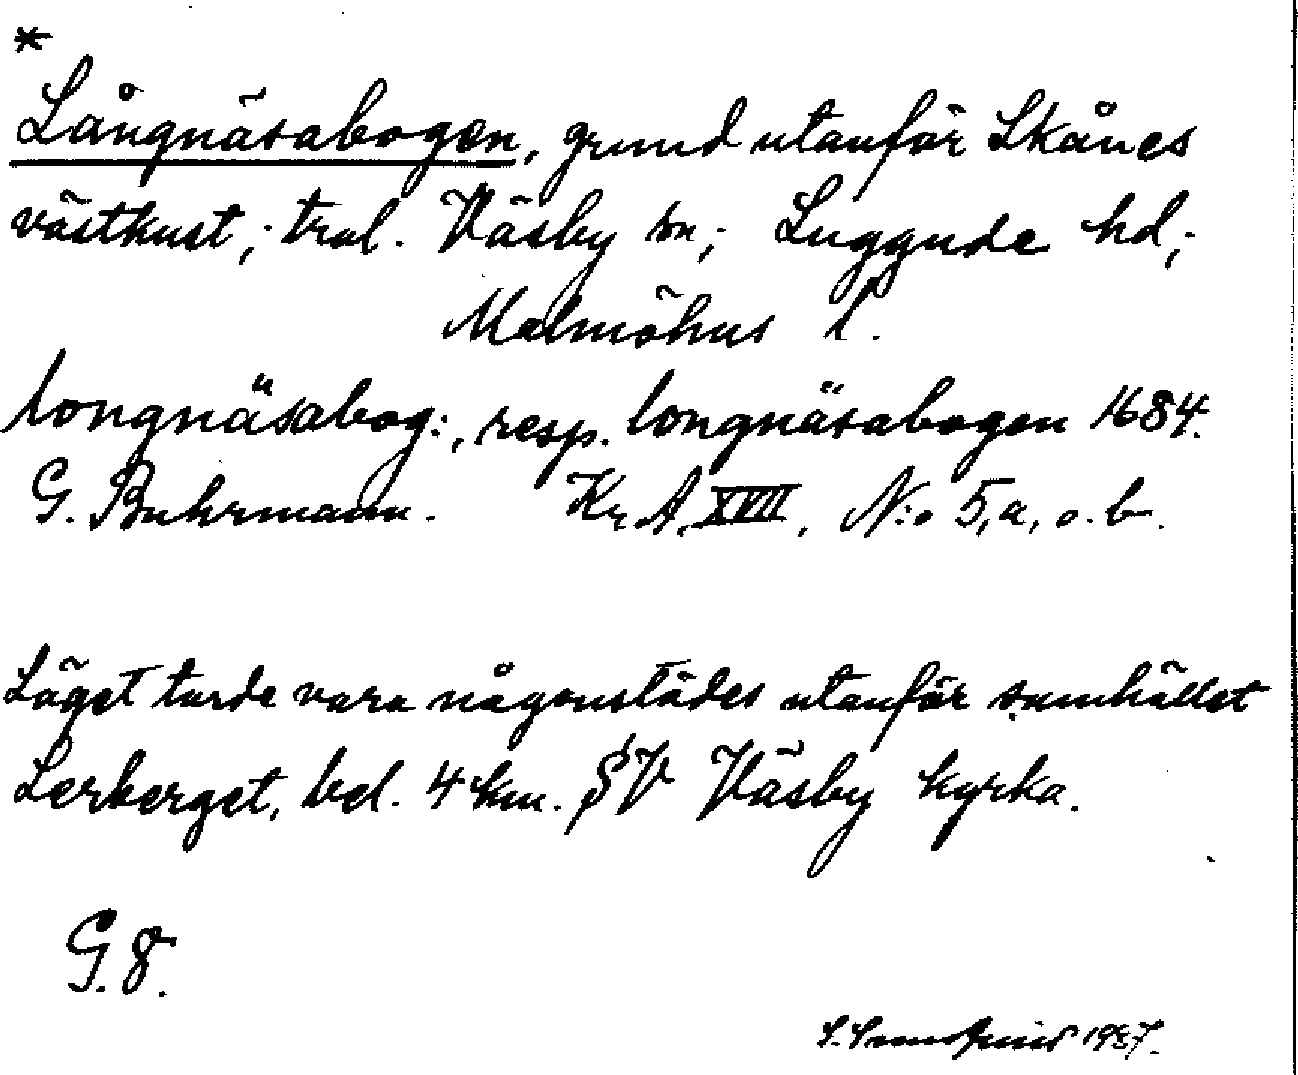 *
Långnäsabogen, grund utanför Skånes
västkust; trol. Väsby sn; Luggude hd;
Malmöhus l.
longnäsabog:, resp. longnäsabogen 1684.
G. Buhrmann. Kr. A. XVII, N:o 5, a, o. b.
Läget torde vara någonstädes utanför samhället
Lerberget, bel. 4 km. SV Väsby kyrka.
G. 8.
1937.